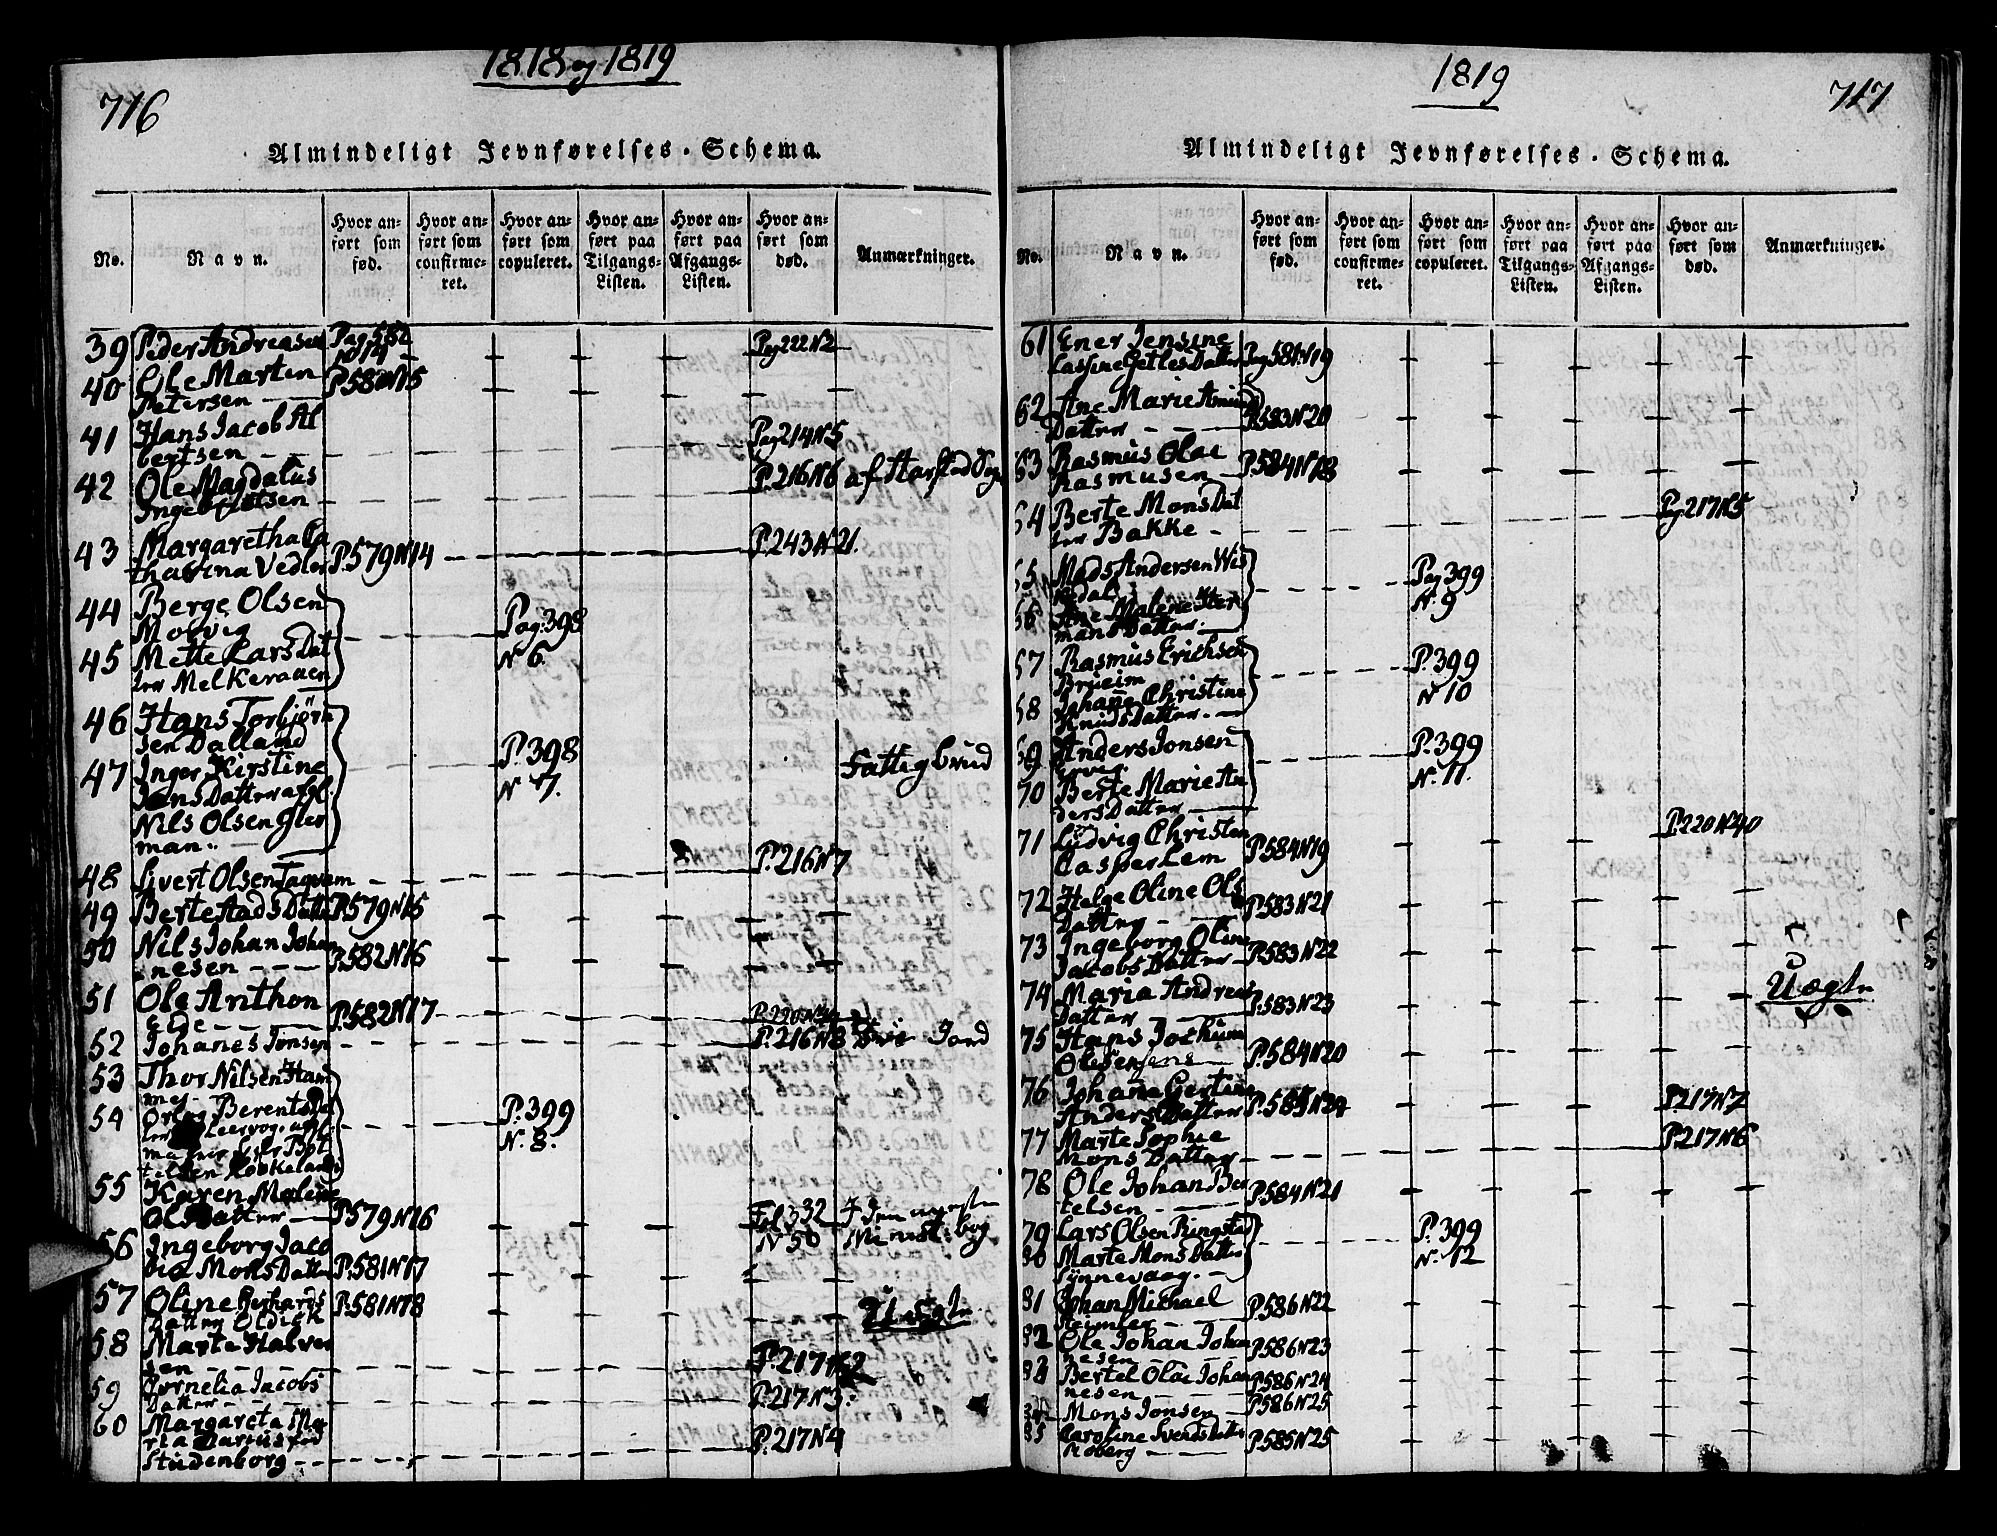 1818 og 1819
716
Almindeligt Jevnførelses-Schema.
No.
Navn.
Hvor anført som fød.
Hvor anført som confirmeret.
Hvor anført som copuleret.
Hvor anført paa Tilgangs-Listen.
Hvor anført paa Afgangs-Listen.
Hvor anført som død.
Anmærkninger.
39 Peder Andreasen Pag 582 Pag 222 N 2
N 14
40 Ole Marten P. 582 N 15
Petersen
41 Hans Jacob Al
bertsen Pag 214 N 5
42 Ole Magdalus P. 216 N 6 af
Ingebrigtsen
43 Margaretha Ca P. 243 N 21.
tharina Vedler P. 579 N 14
44 Berge Olsen Pag. 398
Mowig
45 Mette Lars Dat N 6.
ter Melkeraaen
46 Hans Torbjörn
sen Dalland P. 398
47 Inger Kirstine N 7. Fattig brud
Jens Datter afgl.
Nils Olsen Gler
man.
48 Sivert Olsen P. 216 N 7
49 Berte Datter P. 579 N 15
50 Nils Johan Johan
nesen P. 582 N 16
51 Ole Anthon P. 582 N 17
52 Johanes Jonsen P. 216 N 8
53 Thor Nilsen Ham
mer
54 Berents Dat P. 399
ter N. 8.
55 Karen Malene
Ols Datter P. 579 N 16 Fol 332 I den
N 50 Minist. bog
56 Ingeborg Jaco
bia Mons Datter P. 581 N 17
57 Oline Gerhards P. 581 N 18 Uægte.
Datter
58 Marte Halvor
sen P. 217 N 2
59 Cornelia Jacobs
Datter P. 217 N 3.
60 Margareta Ma
ria P. 217 N 4
Studenborg
1819
717
Almindeligt Jevnførelses-Schema.
No.
Navn.
Hvor anført som fød.
Hvor anført som confirmeret.
Hvor anført som copuleret.
Hvor anført paa Tilgangs-Listen.
Hvor anført paa Afgangs-Listen.
Hvor anført som død.
Anmærkninger.
61 Ener Jensine
Datter Pag 581 N 19
62 Ane Marie Amund
Datter P. 583 N 20
63 Rasmus Olai
Rasmusen P. 584 N 18
64 Berte Mons Dat Pag 217 N 5
ter Bakke
65 Mads Andersen Wis
dal Pag 399
66 Ane Malene Her N. 9
mans Datter.
67 Rasmus Erichsen P. 399
Brueim
68 Johane Christine N 10
Knuds Datter.
69 Anders Jonsen P. 399
70 Berte Marie An N. 11.
ders Datter
71 Ludvig Christen P. 220 N 40
Casper Lem P. 584 N 19
72 Helge Oline Ols
Datter P. 583 N 21
73 Ingeborg Oline
Jacobs Datter P. 583 N 22
74 Maria Andreas Uægte
Datter P. 583 N 23
75 Hans Jochum
Olesen P. 584 N 20
76 Johane Gertine P. 217 N 7
Anders Datter P. 585 N 24
77 Marte Sophie P. 217 N 6
Mons Datter
78 Ole Johan Ber
telsen P. 584 N 21
79 Lars Olsen Ringstad P. 399
80 Marte Mons Datter N. 12
Synnevaag.
81 Johan Michael P. 586 N 22
82 Ole Johan Johan
nesen P. 586 N 23
83 Bertel Olai Johan
nesen P. 586 N 24
84 Mons Jonsen P. 586 N 25
85 Caroline Svends Datter P. 585 N 25
Moberg